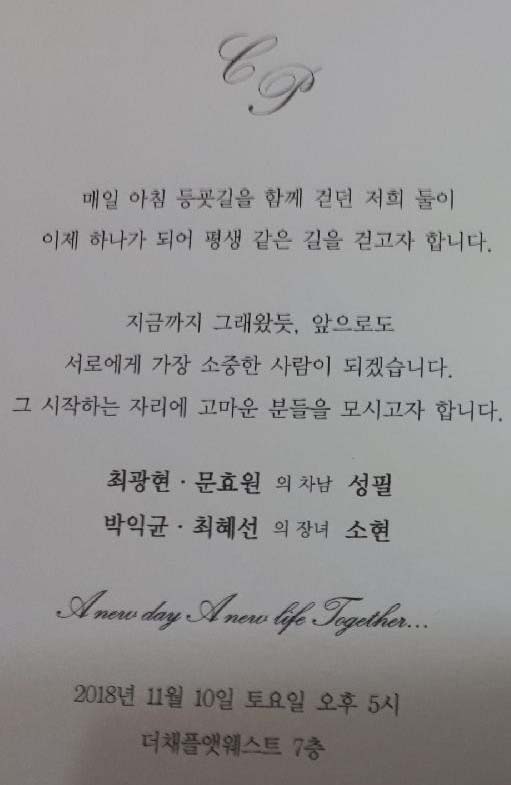 CP
매일 아침 등굣길을 함께 걷던 저희 둘이
이제 하나가 되어 평생 같은 길을 걷고자 합니다.
지금까지 그래왔듯, 앞으로도
서로에게 가장 소중한 사람이 되겠습니다.
그 시작하는 자리에 고마운 분들을 모시고자 합니다.
최광현 · 문효원 의 차남 성필
박익균 · 최혜선 의 장녀 소현
A new day A new life Together...
2018년 11월 10일 토요일 오후 5시
더채플앳웨스트 7층